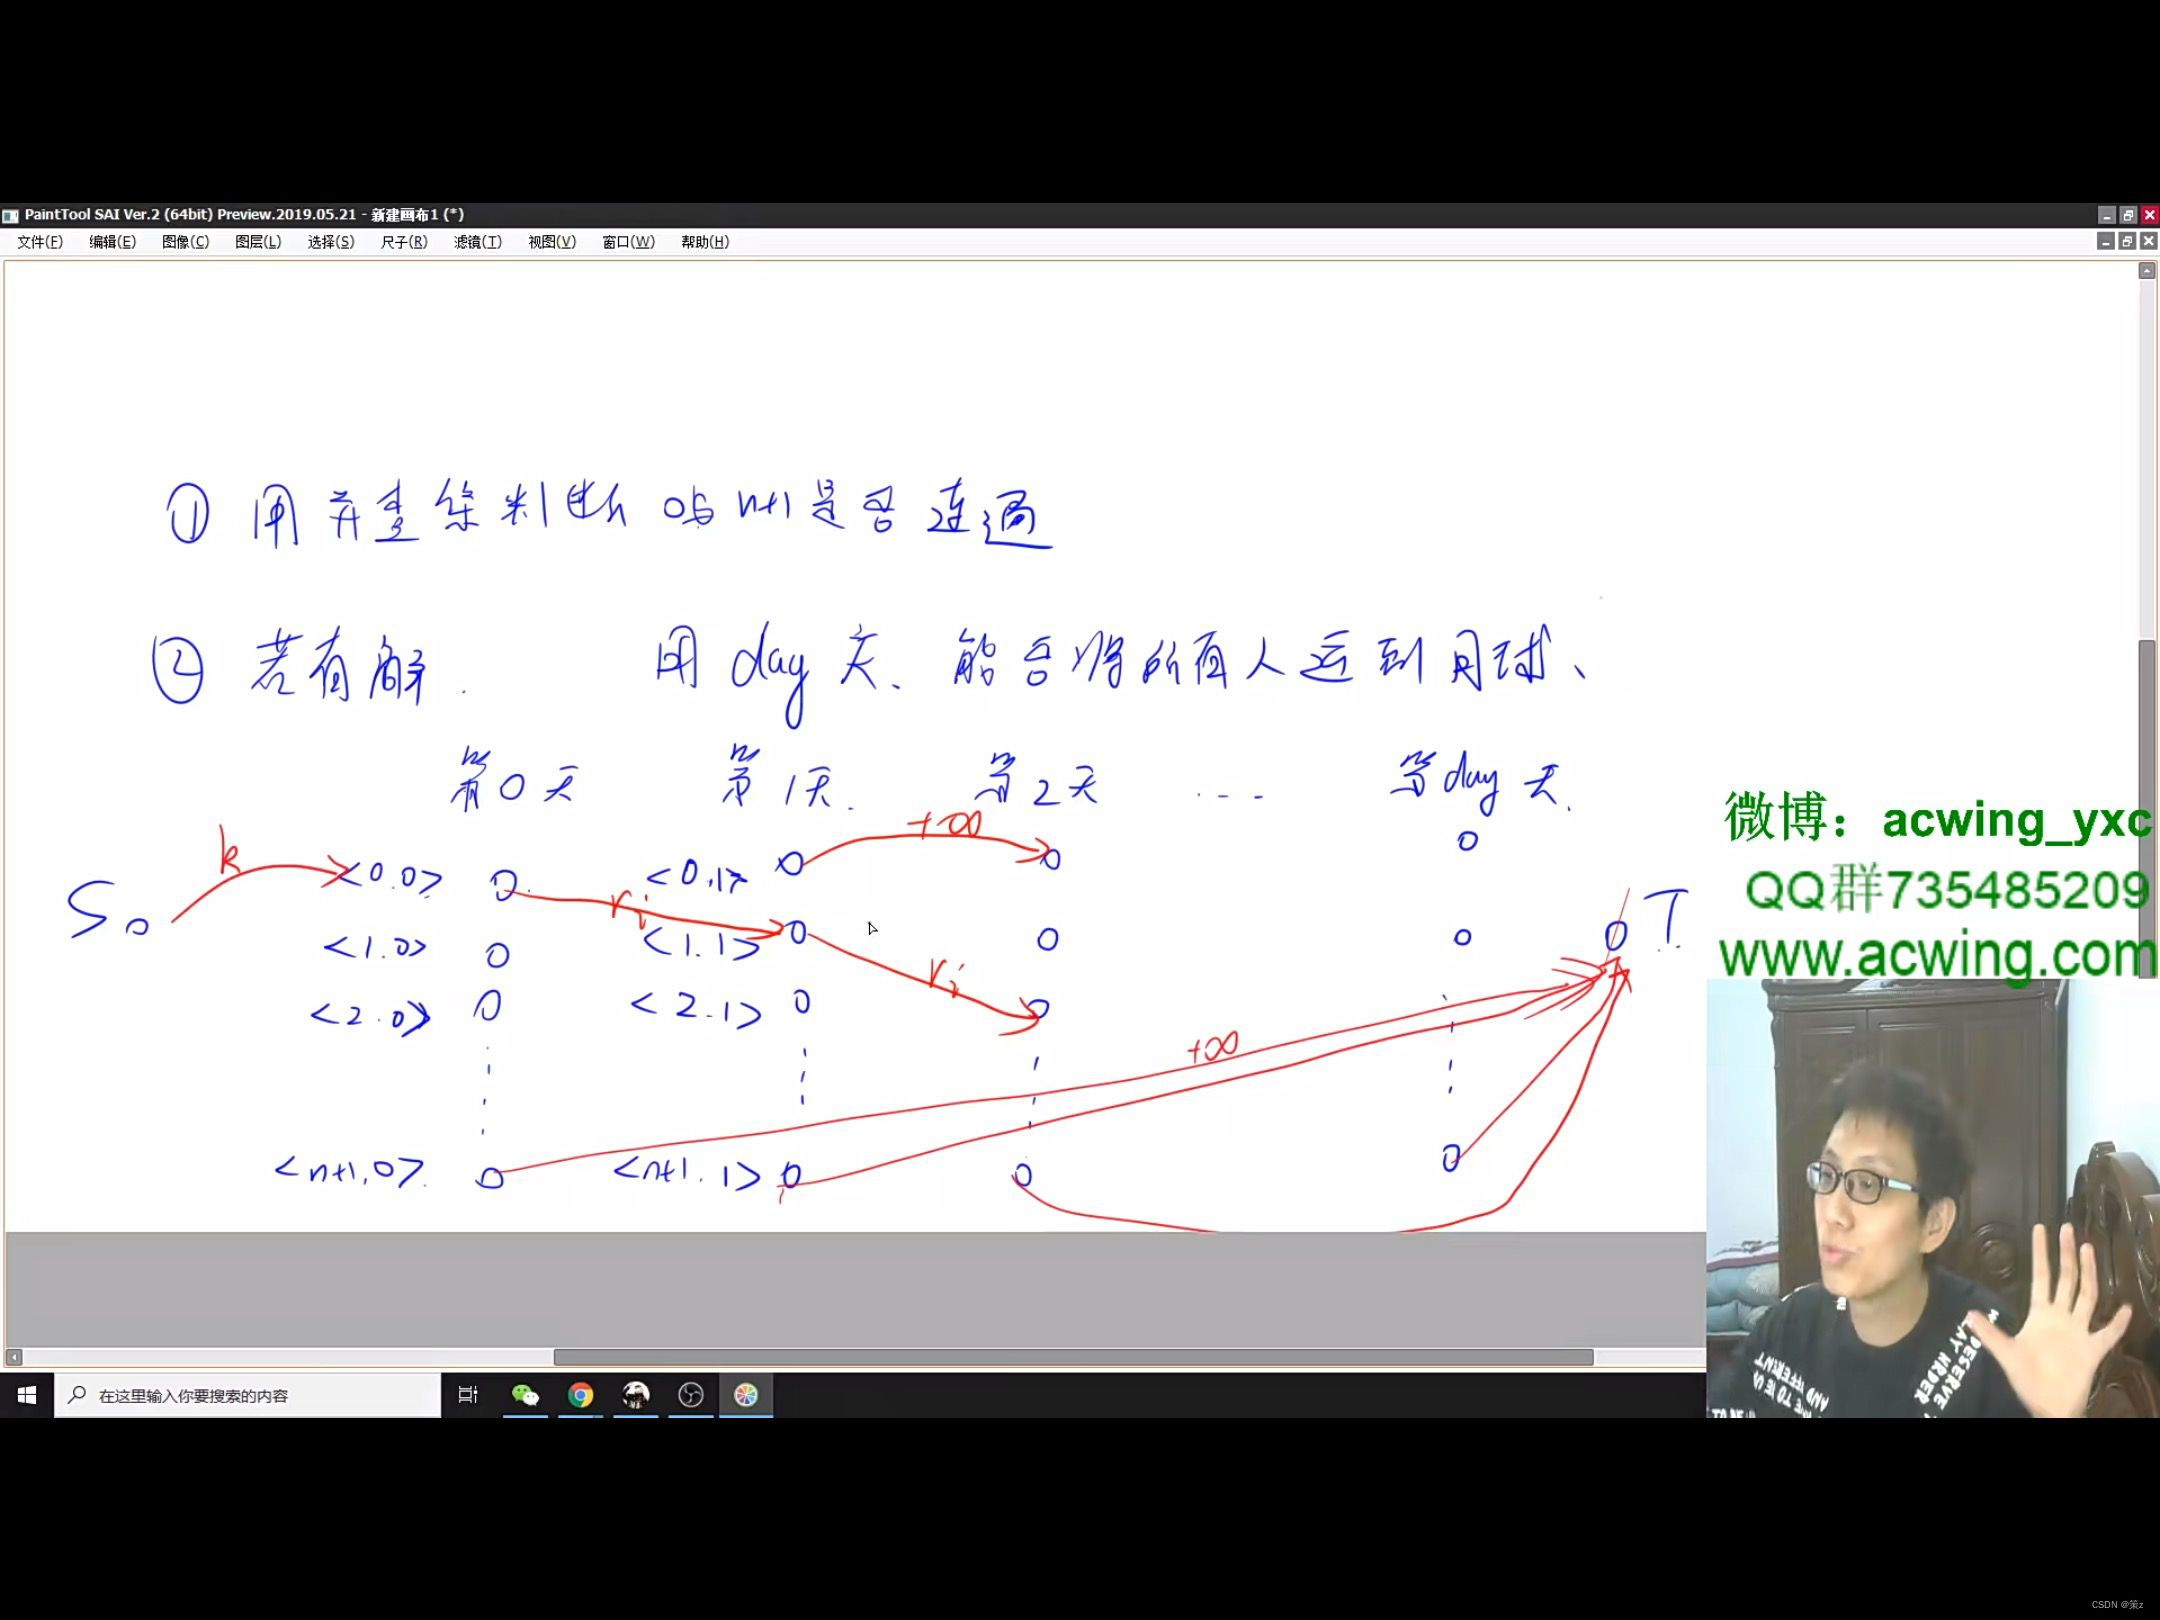 PaintTool SAI Ver.2 (64bit) Preview.2019.05.21 - 新建画布1 (*)
文件(F) 编辑(E) 图像(C) 图层(L) 选择(S) 尺子(R) 滤镜(T) 视图(V) 窗口(W) 帮助(H)
① 用并查集判断 0与n+1是否连通
② 若有解. 用day天、能否将所有人运到月球、
第0天 第1天. 第2天 ... 第day天.
+∞
k <0.0> <0.1>
S ri T
<1.0> <1.1>
ri
<2.0> <2.1>
+∞
<n+1,0> <n+1.1>
微博：acwing_yxc
QQ群735485209
www.acwing.com
在这里输入你要搜索的内容
CSDN @策z